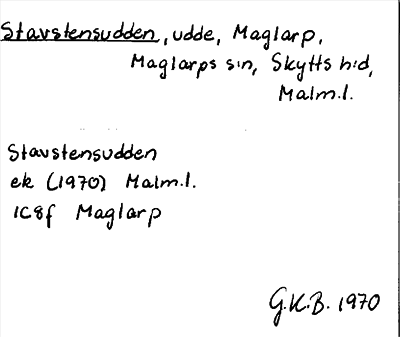 Stavstensudden, udde, Maglarp,
Maglarps s:n, Skytts h:d,
Malm.l.
Stavstensudden
ek (1970) Malm.l.
1C8f Maglarp
G.K.B. 1970